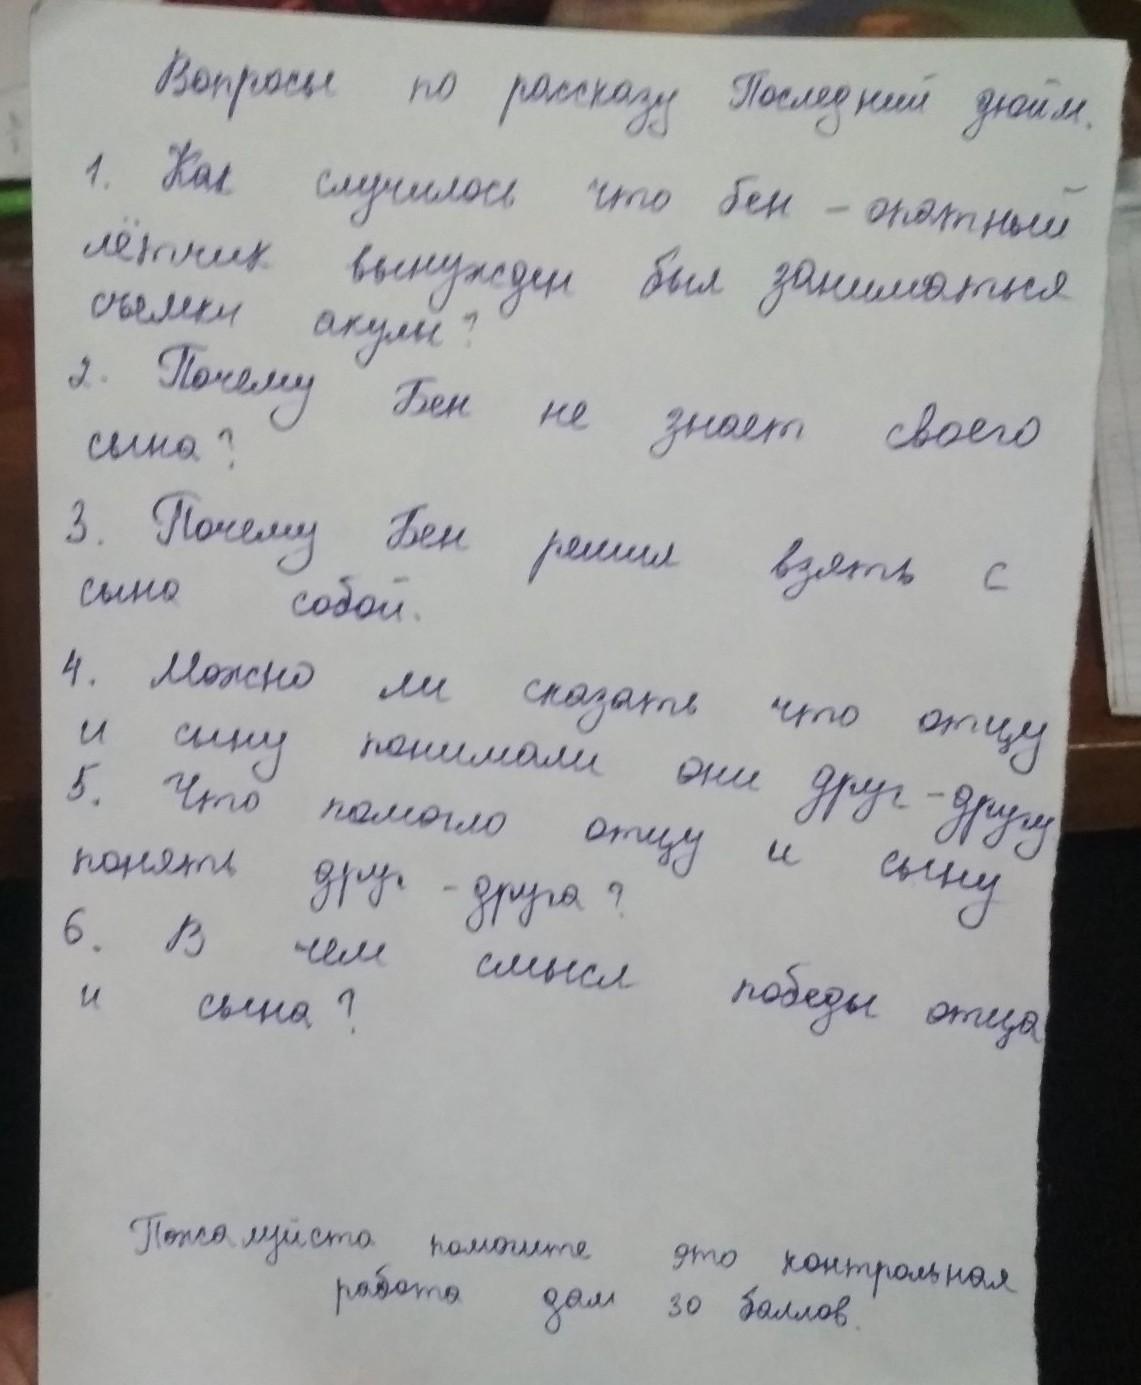 Вопросы по рассказу Последний дюйм.
1. Как случилось что бен - опытный
лётчик вынужден был заниматься
съемки акулы?
2. Почему Бен не знает своего
сына?
3. Почему Бен решил взять с
сына собой.
4. Можно ли сказать что отцу
и сыну понимали они друг-другу
5. Что помогло отцу и сыну
понять друг-друга?
6. В чем смысл победы отца
и сына?
Пожалуйста помогите это контрольная
работа дам 30 баллов.